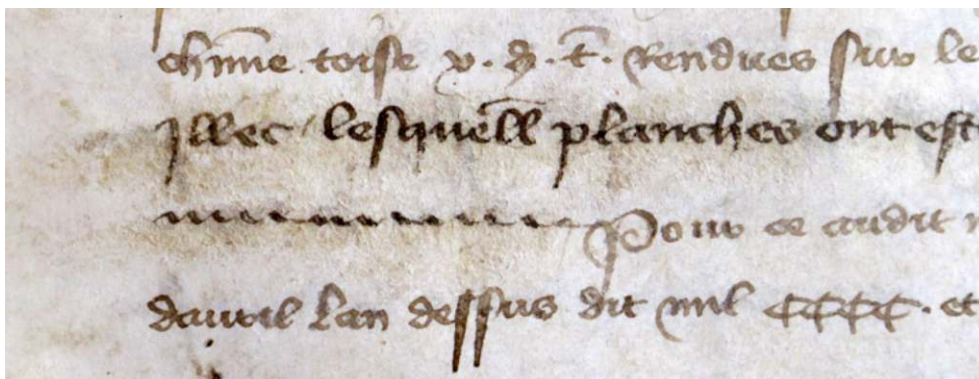 chune toise v. d. t. Rendues sur le
Illec / lesquell planches ont est
Pour ce audit
davril lan dessus dit mil CCCC. et